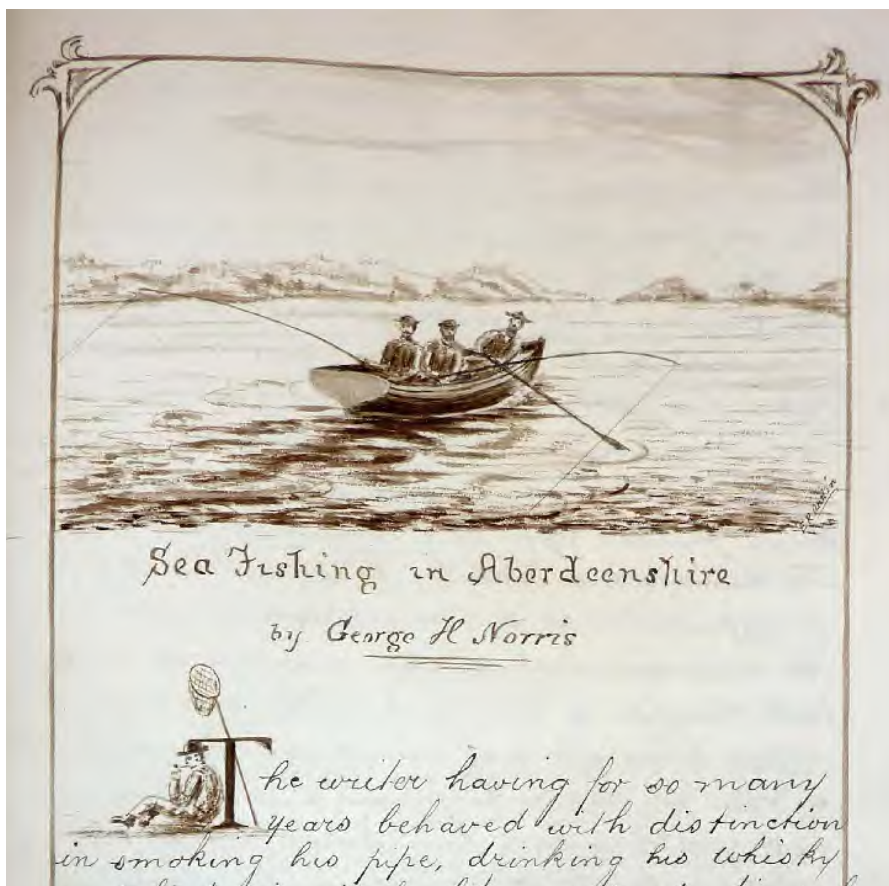 Sea Fishing in Aberdeenshire
by George H Norris
The writer having for so many
years behaved with distinction
in smoking his pipe, drinking his whisky